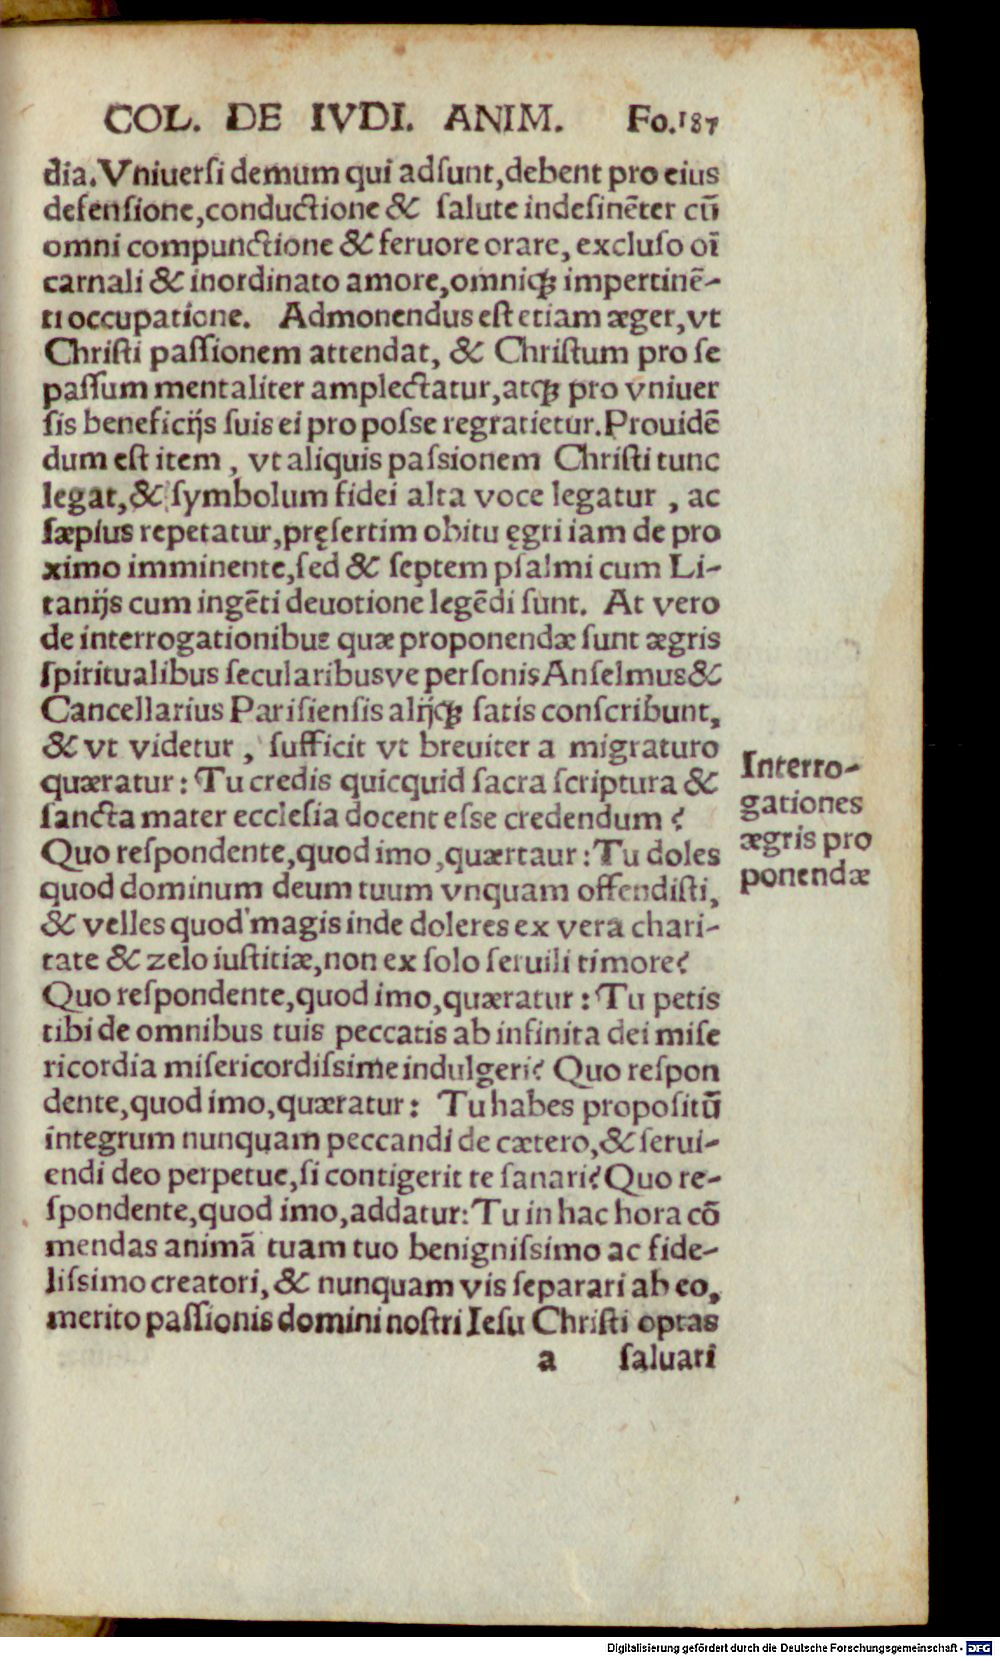 COL. DE IVDI. ANIM. Fo.187
dia. Vniuerſi demum qui adſunt, debent pro eius
defenſione, conductione & ſalute indeſinẽter cũ
omni compunctione & feruore orare, excluſo oĩ
carnali & inordinato amore, omniqꝫ impertinẽ-
ti occupatione. Admonendus eſt etiam æger, vt
Chriſti paſſionem attendat, & Chriſtum pro ſe
paſſum mentaliter amplectatur, atqꝫ pro vniuer
ſis beneficijs ſuis ei pro poſse regratietur. Prouidẽ
dum eſt item, vt aliquis paſsionem Chriſti tunc
legat, & ſymbolum fidei alta voce legatur, ac
ſæpius repetatur, pręſertim obitu ęgri iam de pro
ximo imminente, ſed & ſeptem pſalmi cum Li-
tanijs cum ingẽti deuotione legẽdi ſunt. At vero
de interrogationibus quæ proponendæ ſunt ægris
ſpiritualibus ſecularibusve perſonis Anſelmus &
Cancellarius Pariſienſis alijqꝫ ſatis conſcribunt,
& vt videtur, ſufficit vt breuiter a migraturo
quæratur: Tu credis quicquid ſacra ſcriptura &
ſancta mater eccleſia docent eſse credendum?
Quo reſpondente, quod imo, quærtaur: Tu doles
quod dominum deum tuum vnquam offendiſti,
& velles quod magis inde doleres ex vera chari-
tate & zelo iuſtitiæ, non ex ſolo ſeruili timore?
Quo reſpondente, quod imo, quæratur: Tu petis
tibi de omnibus tuis peccatis ab infinita dei miſe
ricordia miſericordiſsime indulgeri? Quo reſpon
dente, quod imo, quæratur: Tu habes propoſitũ
integrum nunquam peccandi de cætero, & ſerui-
endi deo perpetue, ſi contigerit te ſanari? Quo re-
ſpondente, quod imo, addatur: Tu in hac hora cõ
mendas animã tuam tuo benigniſsimo ac fide-
liſsimo creatori, & nunquam vis ſeparari ab eo,
merito paſſionis domini noſtri Ieſu Chriſti optas
a ſaluari
Interro-
gationes
ægris pro
ponendæ
Digitalisierung gefördert durch die Deutsche Forschungsgemeinschaft - DFG